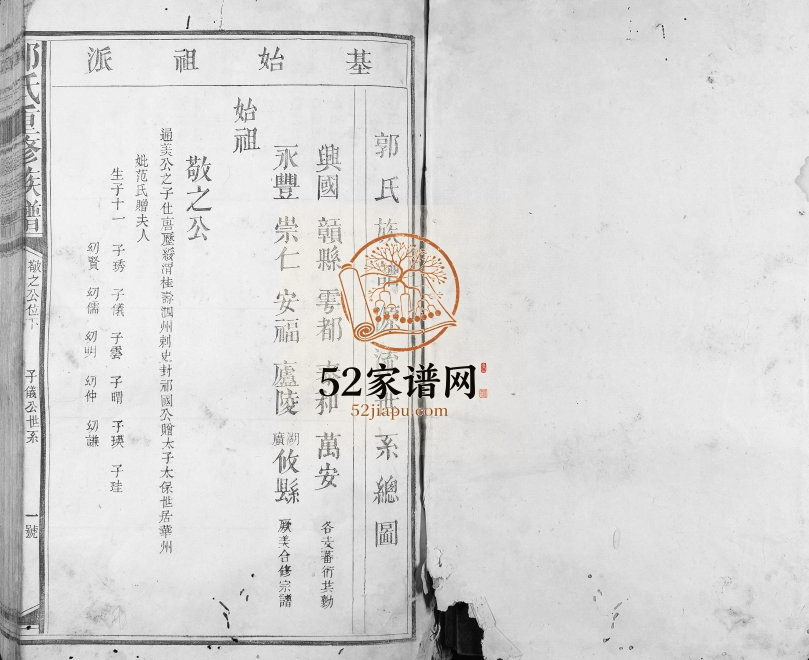 基始祖派
郭氏族 系總圖
興國 贛縣 雩都 萬安 各支蕃衍共勷
永豐 崇仁 安福 廬陵 湖廣 攸縣 厥美合修宗譜
始祖
敬之公
通美公之子仕唐歷綏渭桂壽泗州刺史封祁國公贈太子太保世居華州
妣范氏贈夫人
生子十一 子琇 子儀 子雲 子晴 子瑛 子珪
幼賢 幼儒 幼明 幼仲 幼謙
郭氏重修族譜
敬之公位下
子儀公世系
一號
52家谱网
52jiapu.com